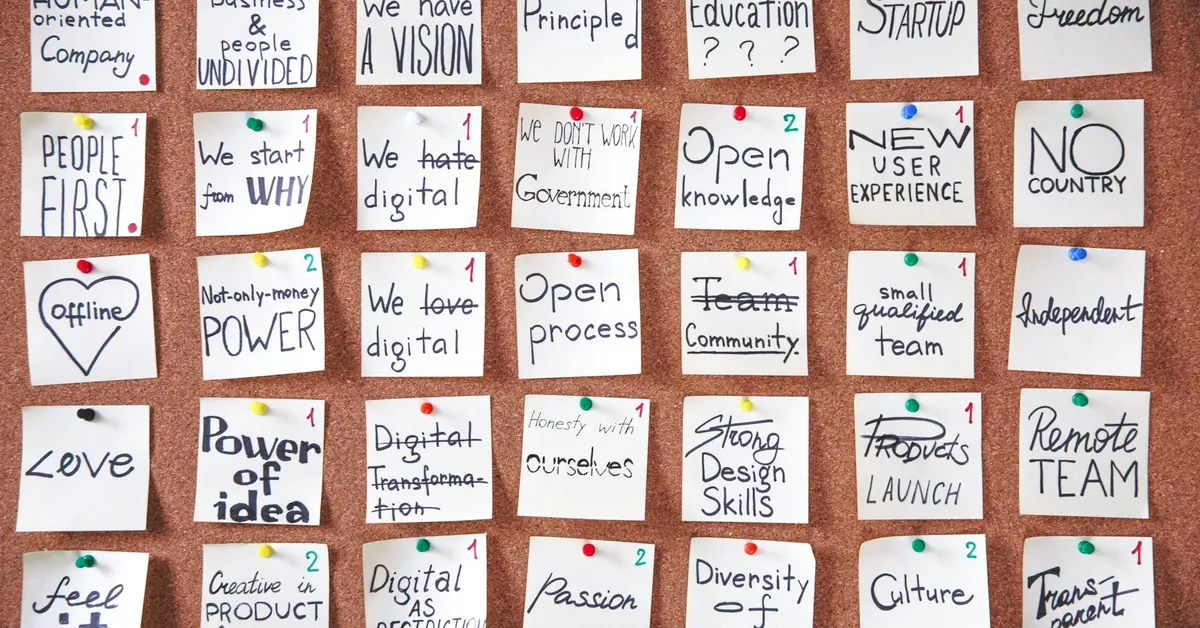 HUMAN-
oriented
Company
Business
&
people
UNDIVIDED
We have
A VISION
Principled
Education
? ? ?
STARTUP
Freedom
1
PEOPLE
FIRST.
1
We start
from WHY
1
We hate
digital
1
We DON'T WORK
WITH
Government
2
Open
knowledge
1
NEW
USER
EXPERIENCE
NO
COUNTRY
offline
2
Not-only-money
POWER
1
We love
digital
Open
process
1
Team
Community.
1
small
qualified
team
Independent
Love
1
Power
of
idea
Digital
Transforma-
tion
1
Honesty with
ourselves
Strong
Design
Skills
1
Products
LAUNCH
Remote
TEAM
feel
it
2
Creative in
PRODUCT
1
Digital
AS
RESTRICTION
2
Passion
Diversity
of
2
Culture
1
Trans-
parent